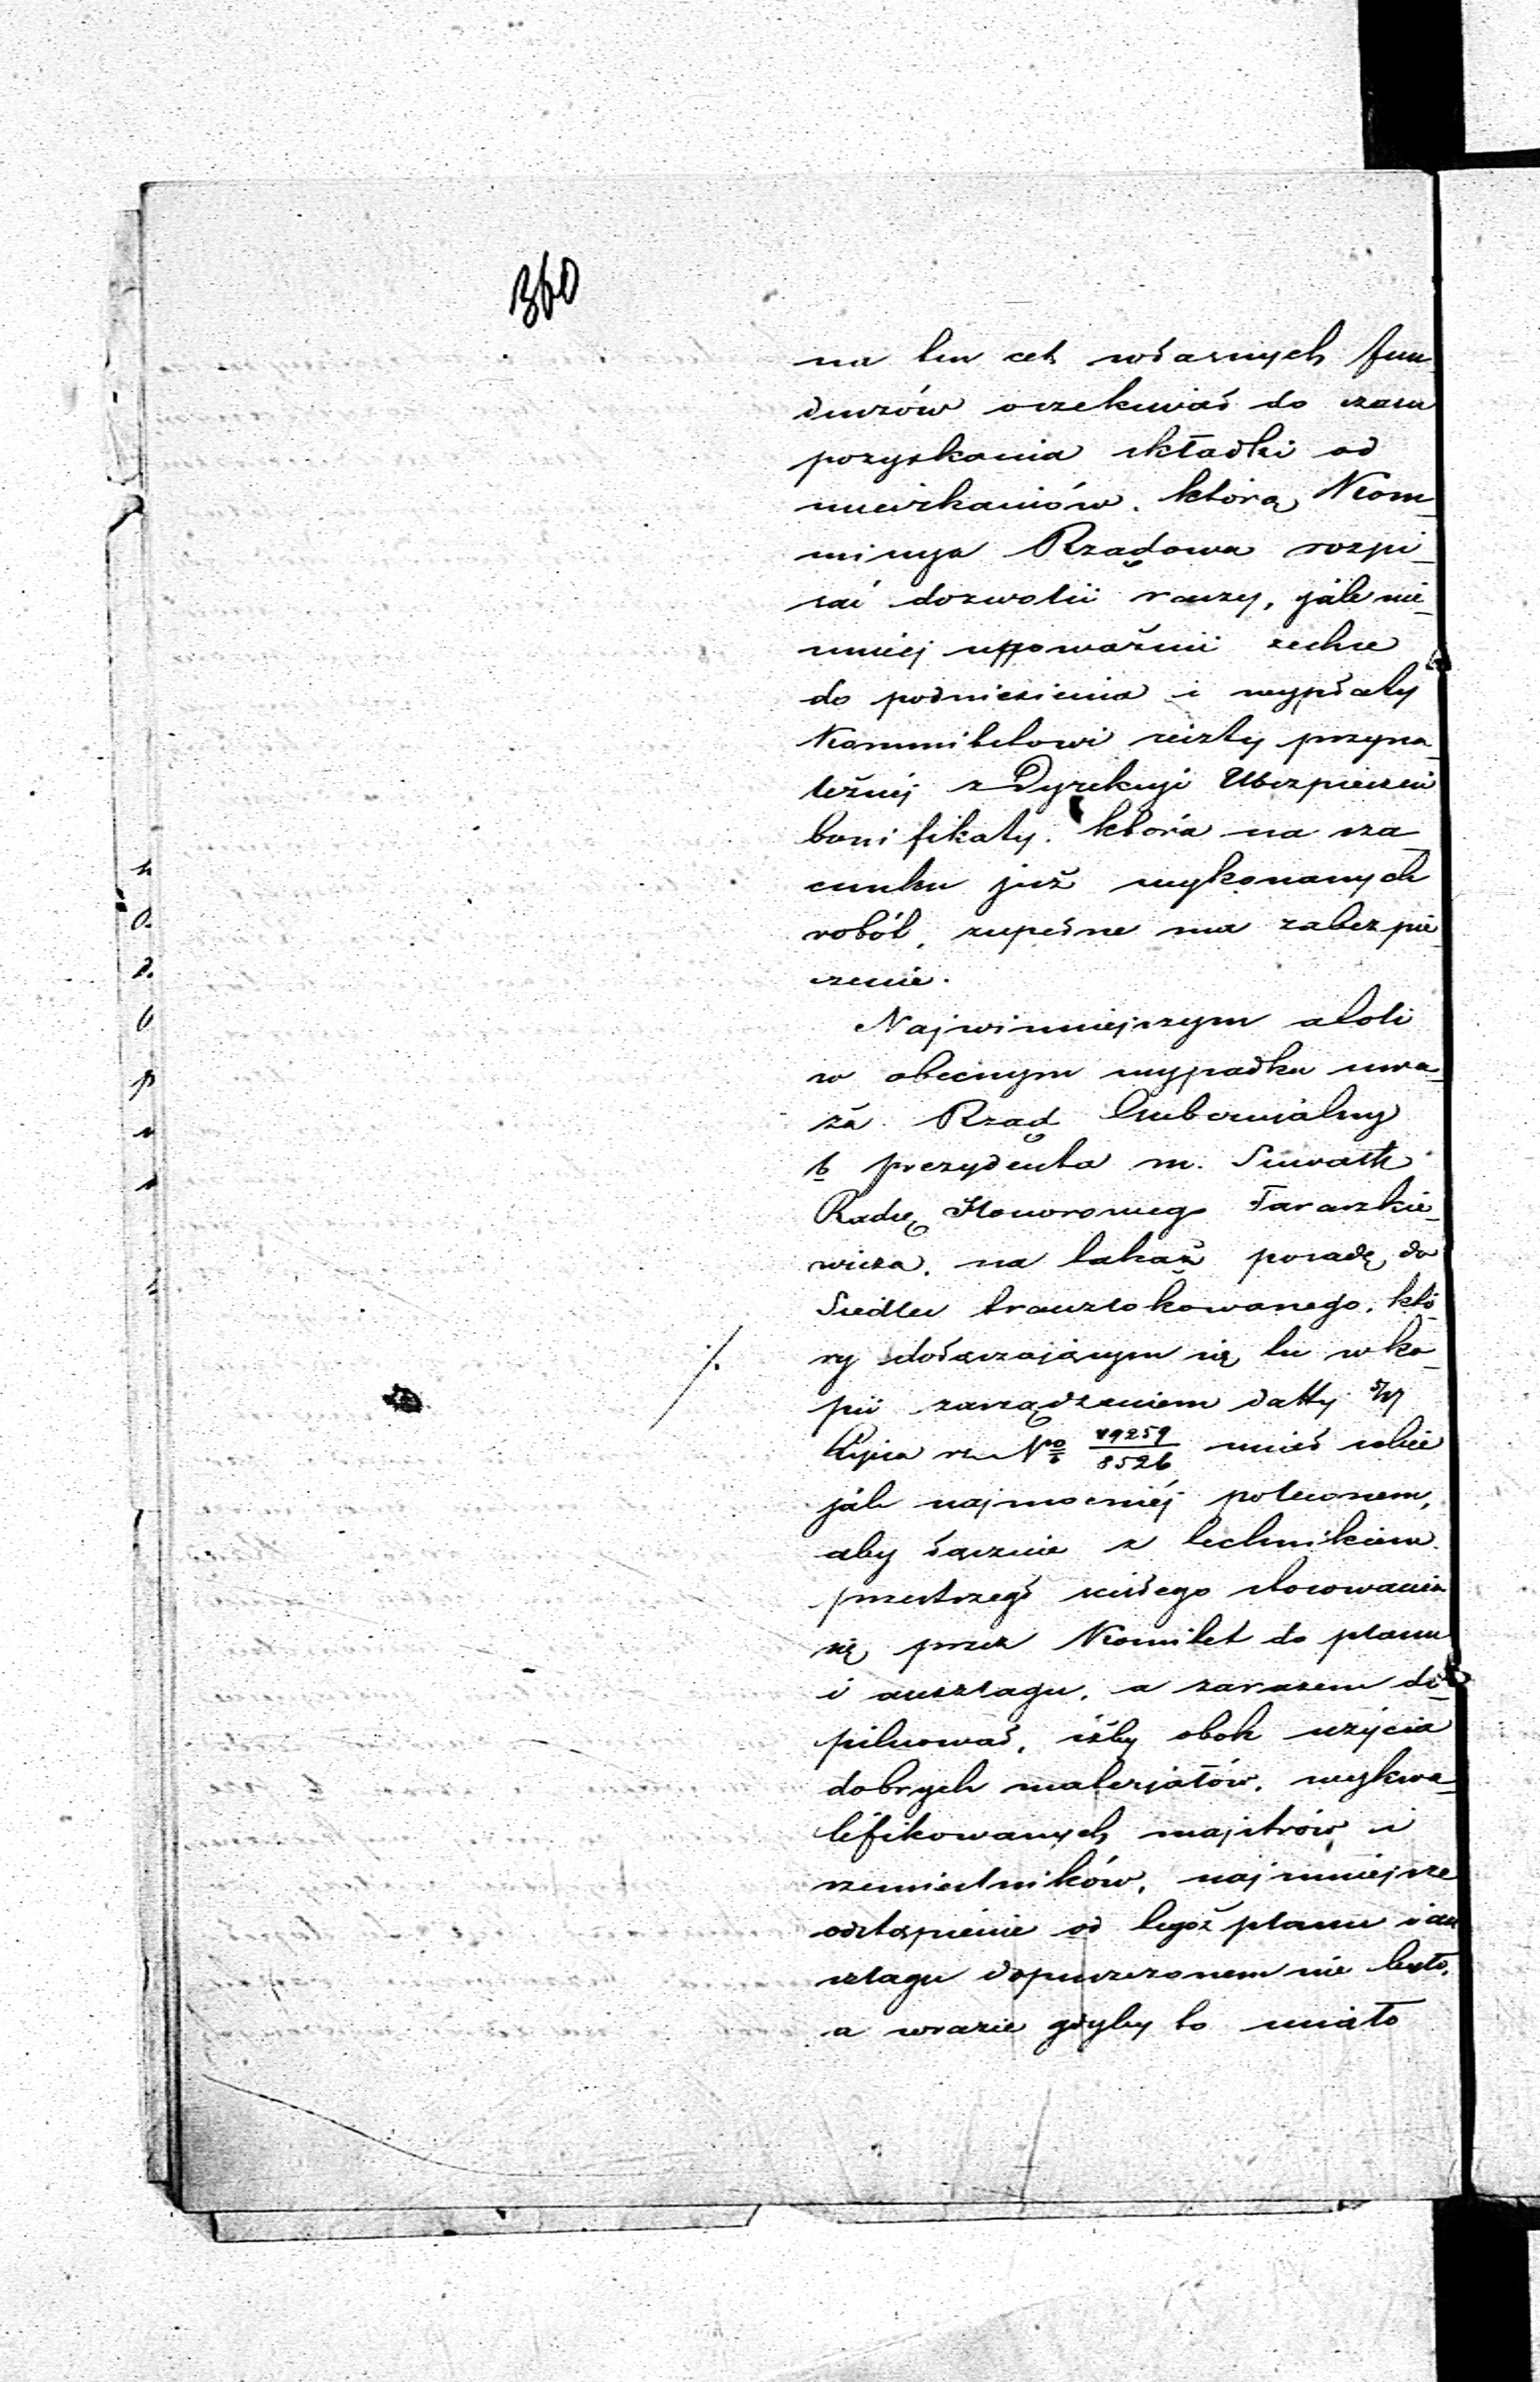 360
na ten cel własnych fun
duszów oczekiwać do czasu
pozyskania składki od
mieszkańców. którą Kom
missya Rządowa rozpi
sać dozwolić raczy, jále nie
mniej uppoważnić zechce
do podniesienia i wypłaty
Kommitetowi reszty przyna
leżnéj z Dyrekcyi Ubezpieczeń
bonifikaty. która na sza
cunku już wykonanych
robót, zupełne ma zabezpie
czenie.
Najwinniejszym atoli
w obecnym wypadku uwa
ża Rząd Gubernialny
b prezydenta m. Suwałk
Radcę Honorowego Taraszkie
wicza, na takąż posadę do
Siedlec translokowanego, któ
ry dołączającym się tu w ko
pii zarządzeniem datty
Lipca r. No 49259/8526 miał sobie
ják najmocniéj poleconem,
aby łącznie z technikiem
przestrzegł ścisłego stosowania
się przez Komitet do planu
i anszlagu, a zarazem do
pilnował, iżby obok użycia
dobrych materjałów, wykwa
lifikowanych majstrów i
rzemieślników, najmniejsze
odstąpienie od tegoż planu i an
szlagu dopuszczonem nie było,
a w razie gdyby to miało